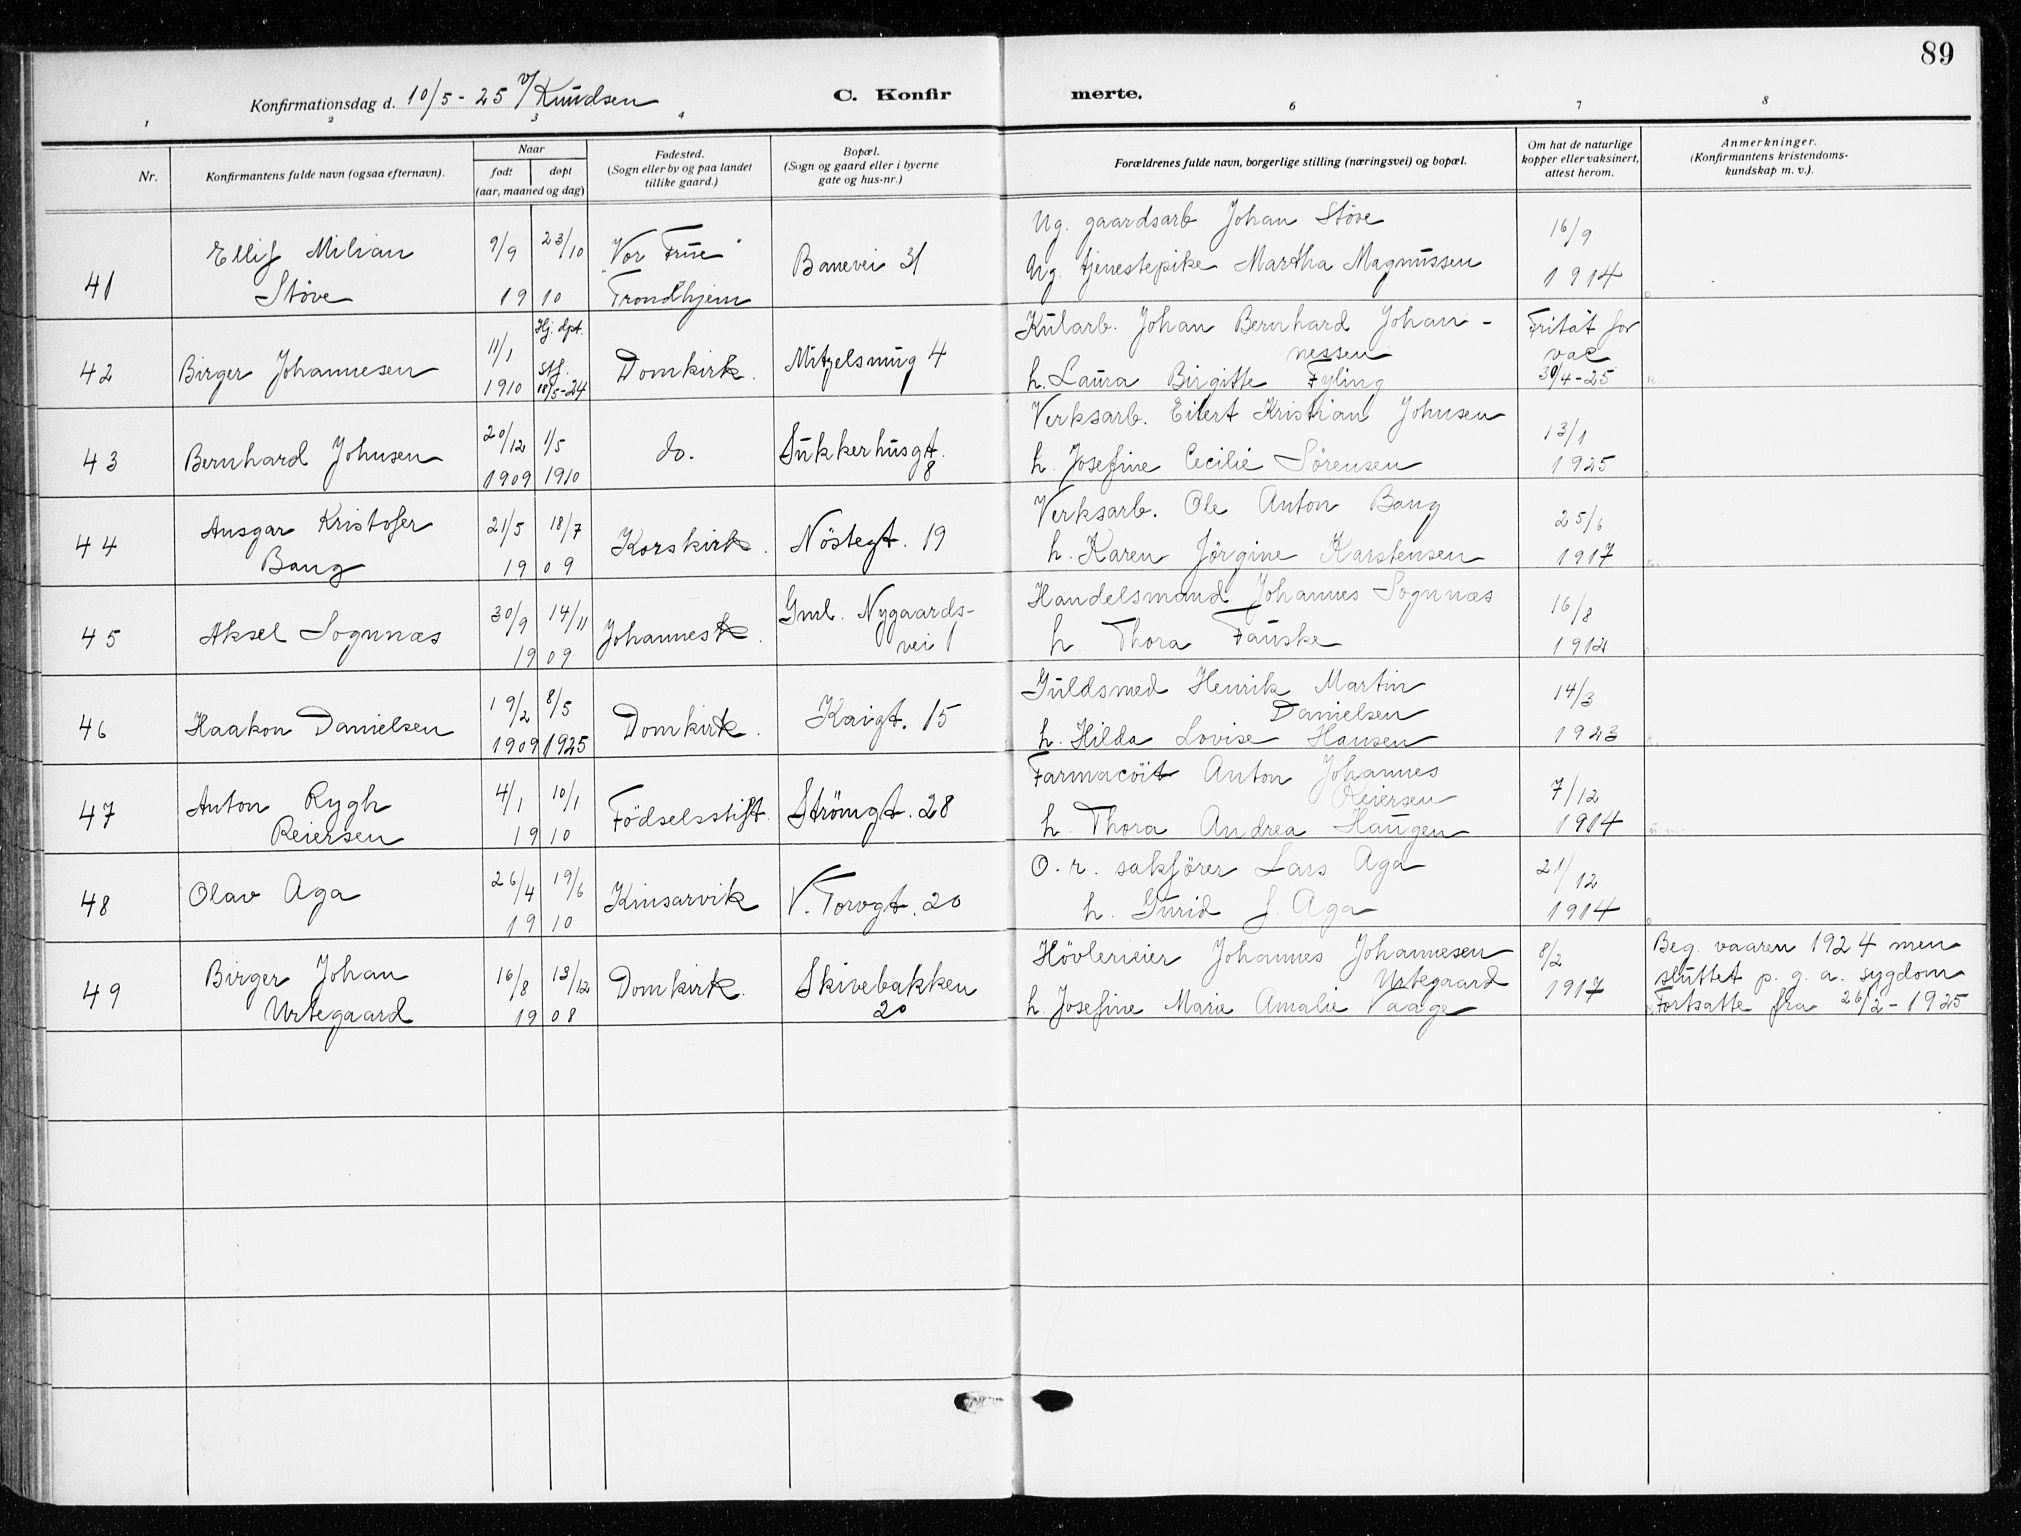 89
Konfirmationsdag d. 10/5 - 25 v/ Knudsen
C. Konfirmerte.
1 2 3 4 6 7 8
Nr.
Konfirmantens fulde navn (ogsaa efternavn).
Naar
født døpt
(aar, maaned og dag)
Fødested.
(Sogn eller by og paa landet
tillike gaard.)
Bopæl.
(Sogn og gaard eller i byerne
gate og hus-nr.)
Forældrenes fulde navn, borgerlige stilling (næringsvei) og bopæl.
Om hat de naturlige
kopper eller vaksinert,
attest herom.
Anmerkninger.
(Konfirmantens kristendoms-
kundskap m. v.).
41
Ellif Milian
Støve
9/9 23/10
19 10
"Vor Frue"
Trondhjem
Banevei 31
Ug. gaardsarb. Johan Støve
Ug. tjenestepike Martha Magnussen
16/9
1914
42
Birger Johannesen
11/1
1910
Hj. dpt.
Stf.
18/5-24
Domkirk.
Mitzelsmug 4
Kularb. Johan Bernhard Johan-
nessen
h. Laura Birgitte Fyling
Fritat for
vac
30/4-25
43
Bernhard Johnsen
20/12 1/5
1909 1910
do.
Sukkerhusgt.
8
Verksarb. Eilert Kristian Johnsen
h. Josefine Cecilie Sörensen
13/1
1925
44
Ansgar Kristofer
Bang
21/5 18/7
19 09
Korskirk.
Nöstegt. 19
Verksarb. Ole Anton Bang
h. Karen Jörgine Karstensen
25/6
1917
45
Aksel Sognnæs
30/9 14/11
19 09
Johannesk.
Gml. Nygaards-
vei 1
Handelsmand Johannes Sognnæs
h. Thora Fauske
16/8
1912
46
Haakon Danielsen
19/2 8/5
1909 1925
Domkirk.
Kaigt. 15
Guldsmed Henrik Martin
Danielsen
h. Hilda Lovise Hansen
14/3
1923
47
Anton Rygh
Reiersen
4/1 10/1
19 10
Födselsstift.
Strömgt. 28
Farmacöit Anton Johannes
Reiersen
h. Thora Andrea Haugen
7/12
1914
48
Olav Aga
26/4 19/6
19 10
Kinsarvik
V. Torvgt. 20
O. r. sakförer Lars Aga
h. Gurid J. Aga
21/12
1914
49
Birger Johan
Urtegaard
16/8 13/12
19 08
Domkirk.
Skivebakken
20
Hövlerieier Johannes Johannesen
Urtegaard
h. Josefine Marie Amalie Vaage
8/2
1917
Beg. vaaren 1924 men
sluttet p. g. a. sygdom
Fortsatte fra 26/2 - 1925